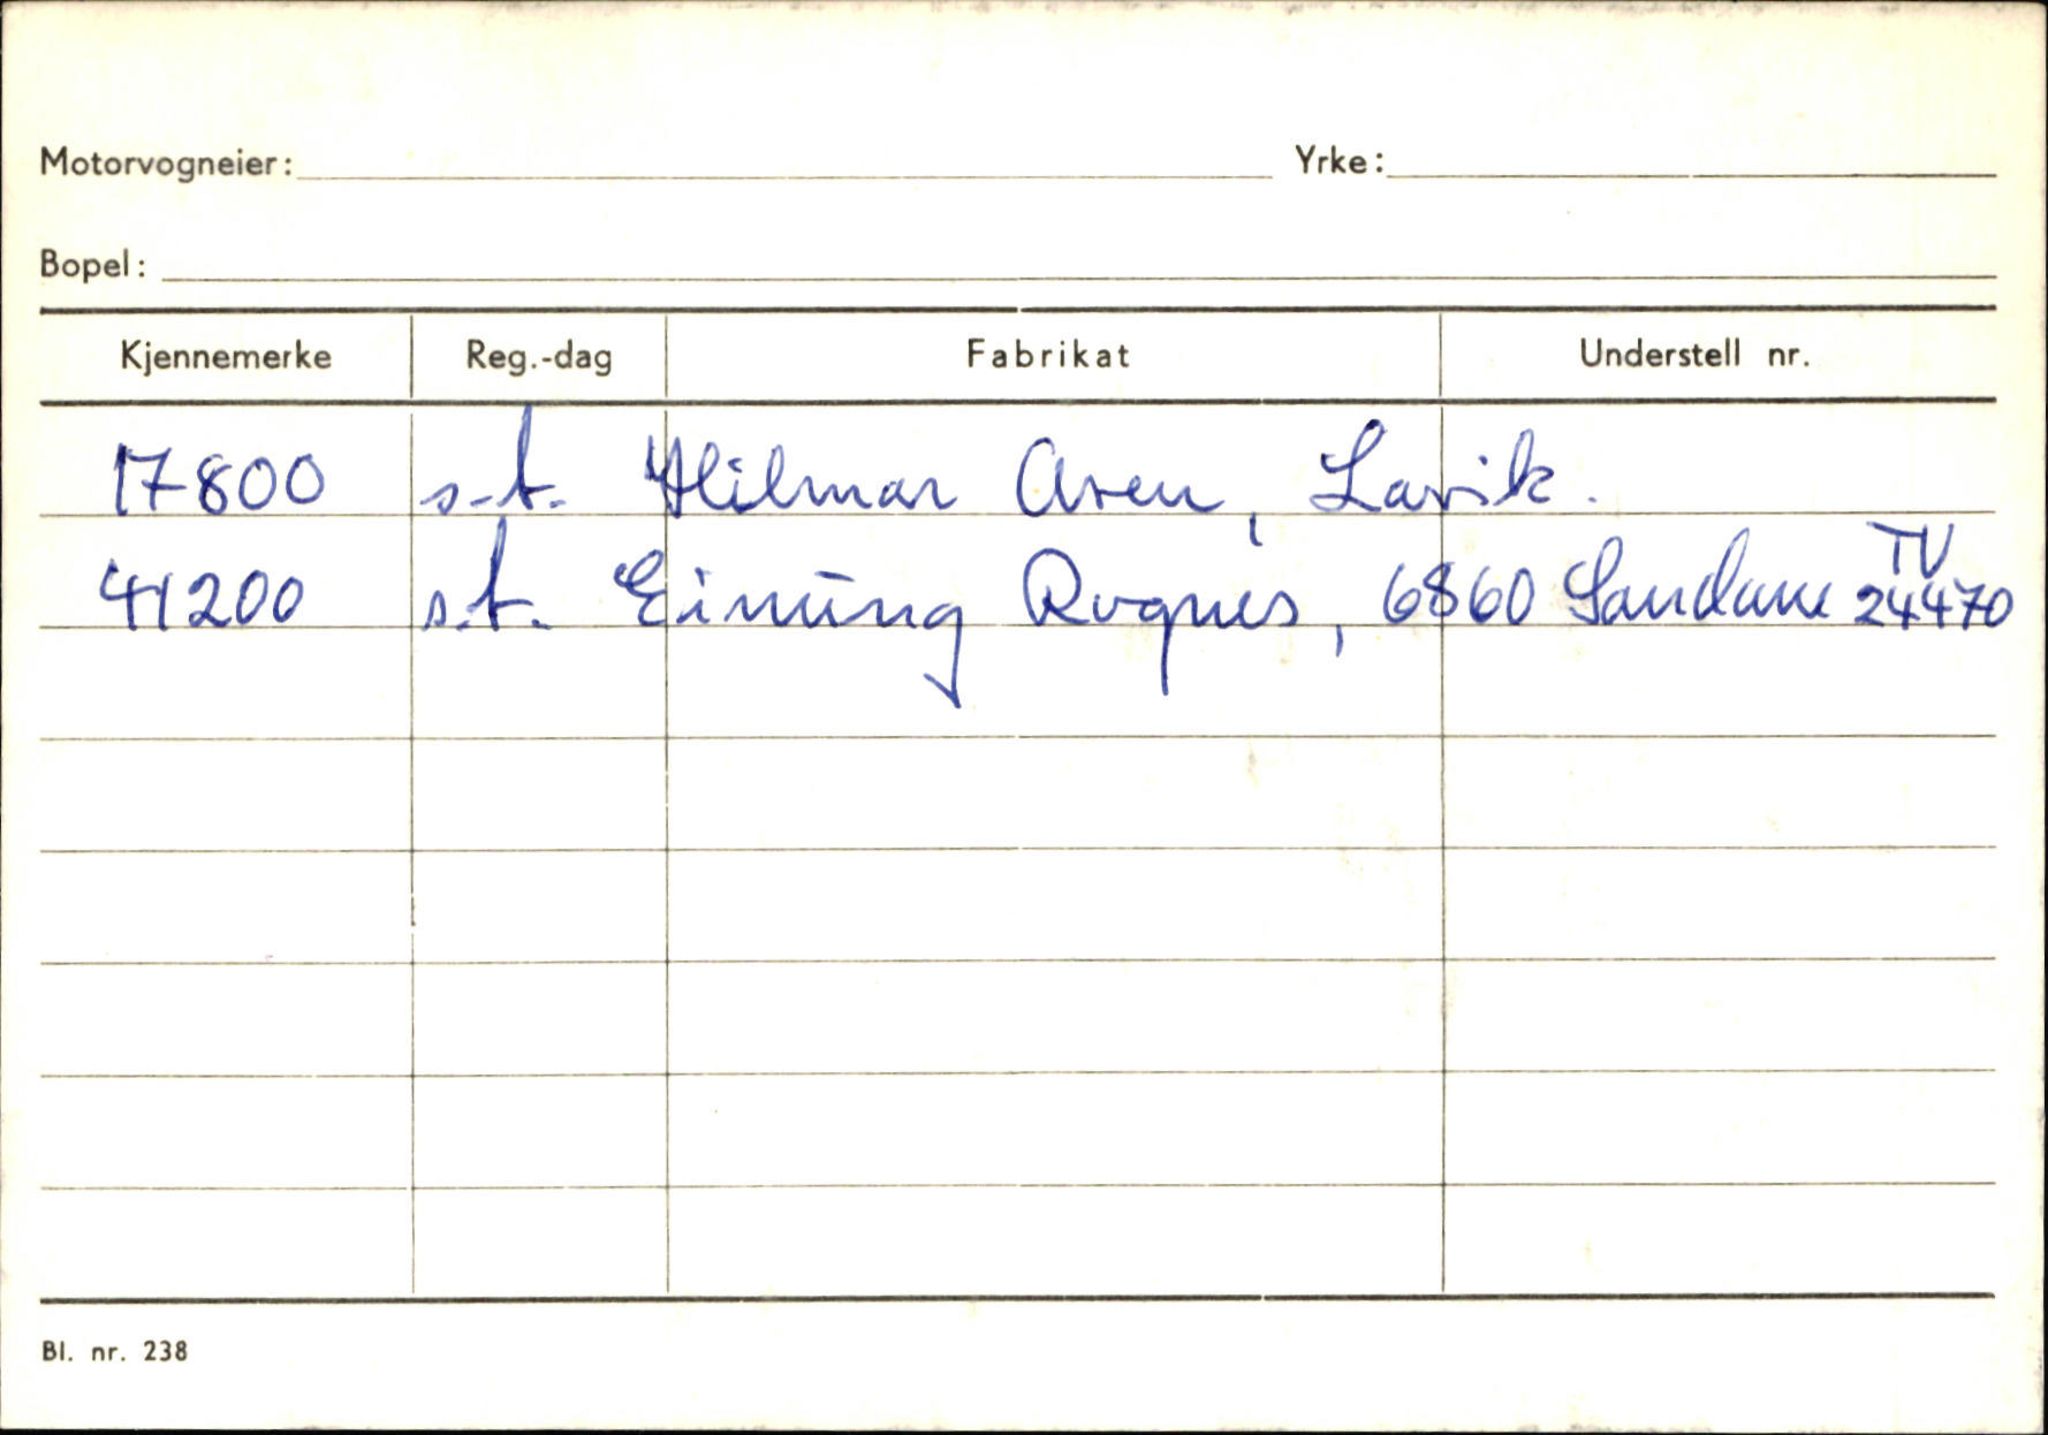 Motorvogneier: Yrke:
Bopel:
Kjennemerke Reg.-dag Fabrikat Understell nr.
17800 s.t. Hilmar Aren, Lavik.
41200 s.t. Einung Rognes, 6860 Sandane TV 24470
Bl. nr. 238